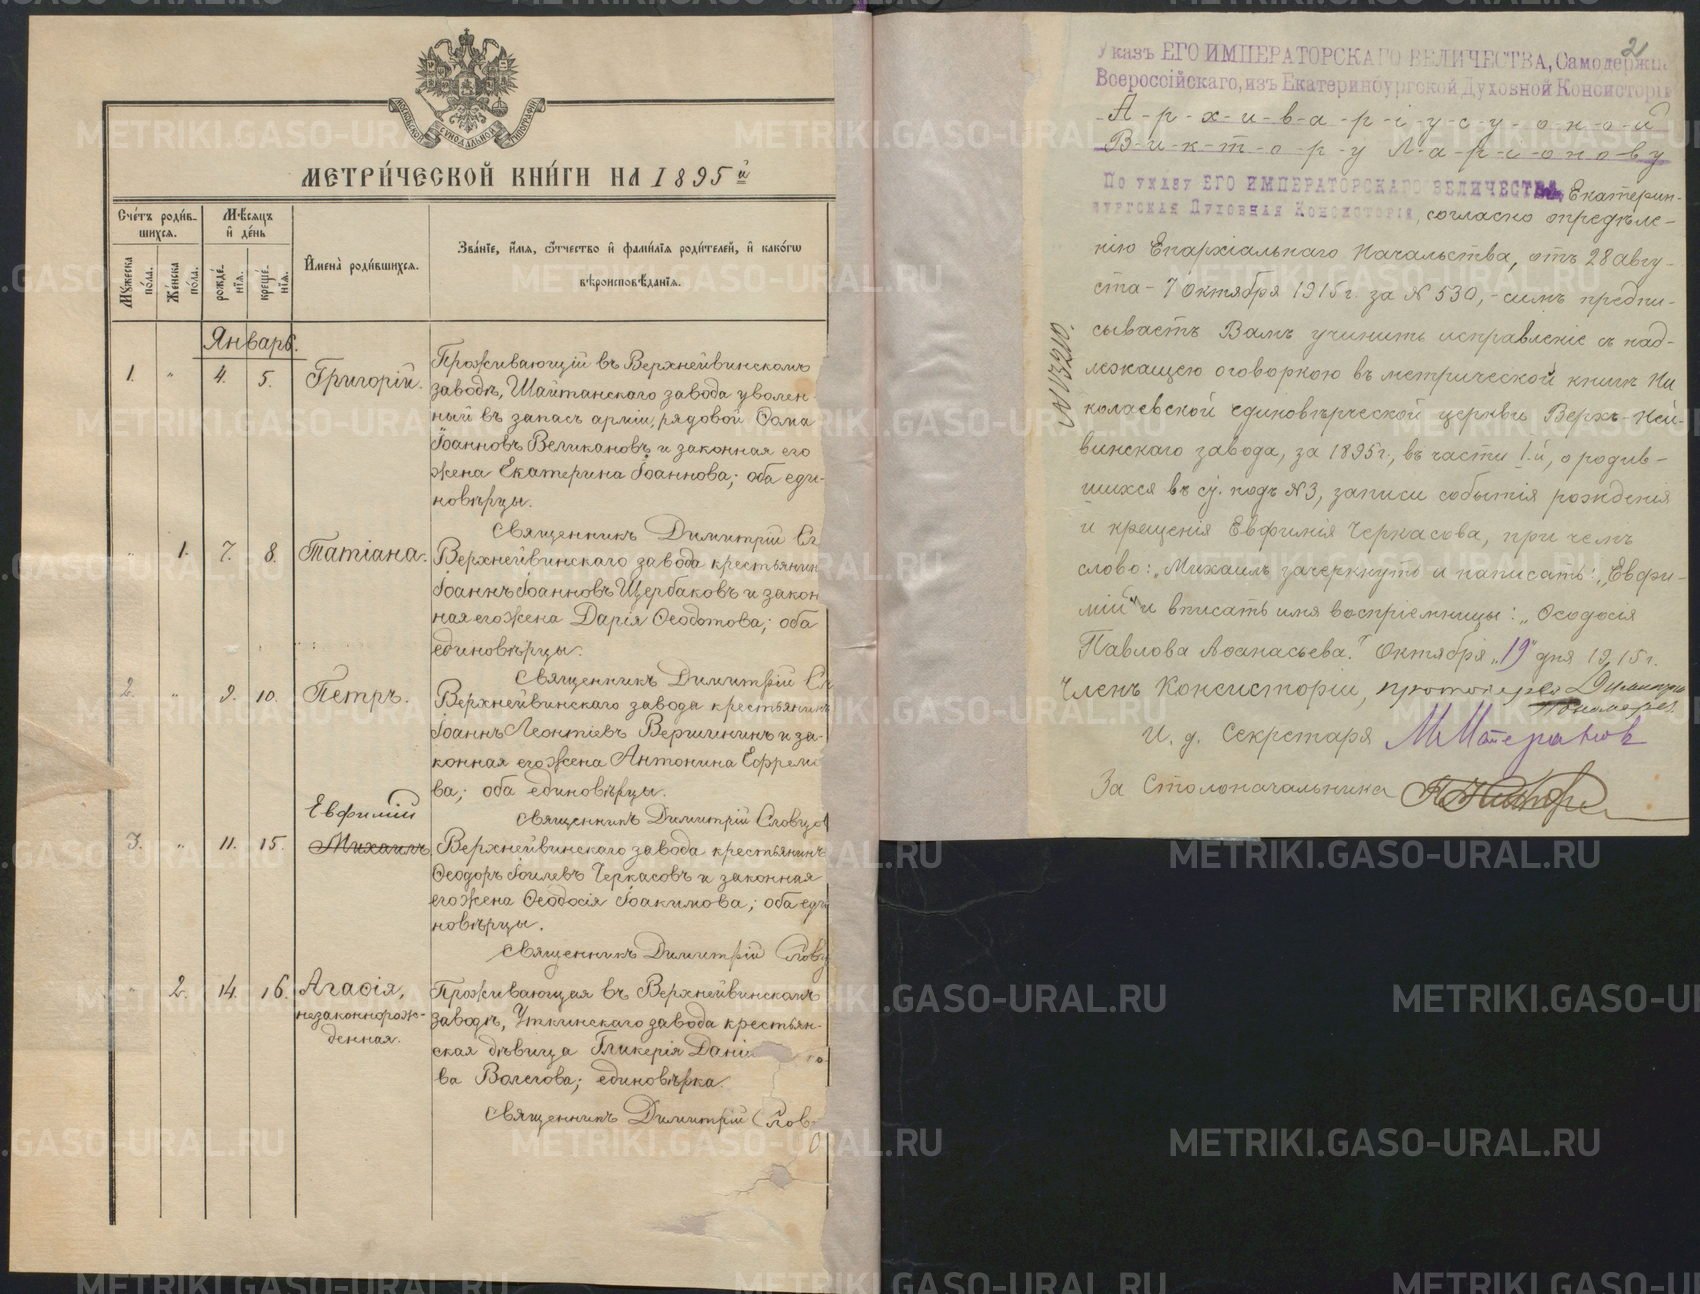 МОСКОВСКОЙ СѴНОДАЛЬНОЙ ТИПОГРАФІИ
МЕТРИ́ЧЕСКОЙ КНИ́ГИ НА 1895й
Сче́тъ роди́в-
шихся.
Мѣ́сяцъ
и҆ де́нь
Му́жеска по́ла.
Же́нска по́ла.
рожде́-
нїя.
креще́-
нїя.
И҆мена̀ роди́вшихся.
Зва́нїе, и҆́мя, ѻ҆́тчество и҆ фами́лїя роди́телей, и҆ како́гѡ
вѣроисповѣ́данїя.
Январь.
1. " 4. 5. Григорій.
Проживающій въ Верхнейвинскомъ
заводѣ, Шайтанскаго завода уволен-
ный въ запасъ арміи, рядовой Ѳома
Іоанновъ Великановъ и законная его
жена Екатерина Іоаннова; оба еди-
новѣрцы.
Священникъ Димитрій Сл
" 1. 7. 8. Татіана.
Верхнейвинскаго завода крестьянин
Іоаннъ Іоанновъ Щербаковъ и закон
ная его жена Дарія Ѳеодотова; оба
единовѣрцы.
Священникъ Димитрій Сл
2. " 9. 10. Петръ.
Верхнейвинскаго завода крестьянинъ
Іоаннъ Леонтіевъ Вершининъ и за-
конная его жена Антонина Ефремо
ва; оба единовѣрцы.
Священникъ Димитрій Словцов
Евфимій
3. " 11. 15. Михаилъ
Верхнейвинскаго завода крестьянинъ
Ѳеодоръ Іоилевъ Черкасовъ и законная
его жена Ѳеодосія Іоакимова; оба еди
новѣрцы.
Священникъ Димитрій Словц
" 2. 14. 16. Агаѳія,
незаконнорож-
денная.
Проживающая въ Верхнейвинскомъ
заводѣ, Уткинскаго завода крестьян-
ская дѣвица Гликерія Дані
ва Волегова; единовѣрка.
Священникъ Димитрій Слов
2
Указъ ЕГО ИМПЕРАТОРСКАГО ВЕЛИЧЕСТВА, Самодержца
Всероссійскаго, изъ Екатеринбургской Духовной Консисторіи
А-р-х-и-в-а-р-і-у-с-у о-н-о-й
В-и-к-т-о-р-у Л-а-р-і-о-н-о-в-у
По указу ЕГО ИМПЕРАТОРСКАГО ВЕЛИЧЕСТВА, Екатерин-
бургская Духовная Консисторія, согласно опредѣле-
нію Епархіальнаго Начальства, отъ 28 авгу-
ста - 7 октября 1915 г. за № 530, - симъ предпи-
сываетъ Вамъ учинить исправленіе съ над-
лежащею оговоркою въ метрической книгѣ Ни
колаевской единовѣрческой церкви Верхъ-Ней-
винскаго завода, за 1895 г., въ части 1-й, о родив-
шихся въ сч. подъ № 3, записи событія рожденія
и крещенія Евфимія Черкасова, при чемъ
слово: „Михаилъ зачеркнуть и написать: „Евфи-
мій" и вписать имя воспріемницы: „Ѳеодосія
Павлова Аѳанасьева." Октября „19" дня 1915 г.
Членъ Консисторіи, протоіерей Димитрій
Пономаревъ
И. д. Секретаря М. Матерановъ
За Столоначальника
№ 13210.